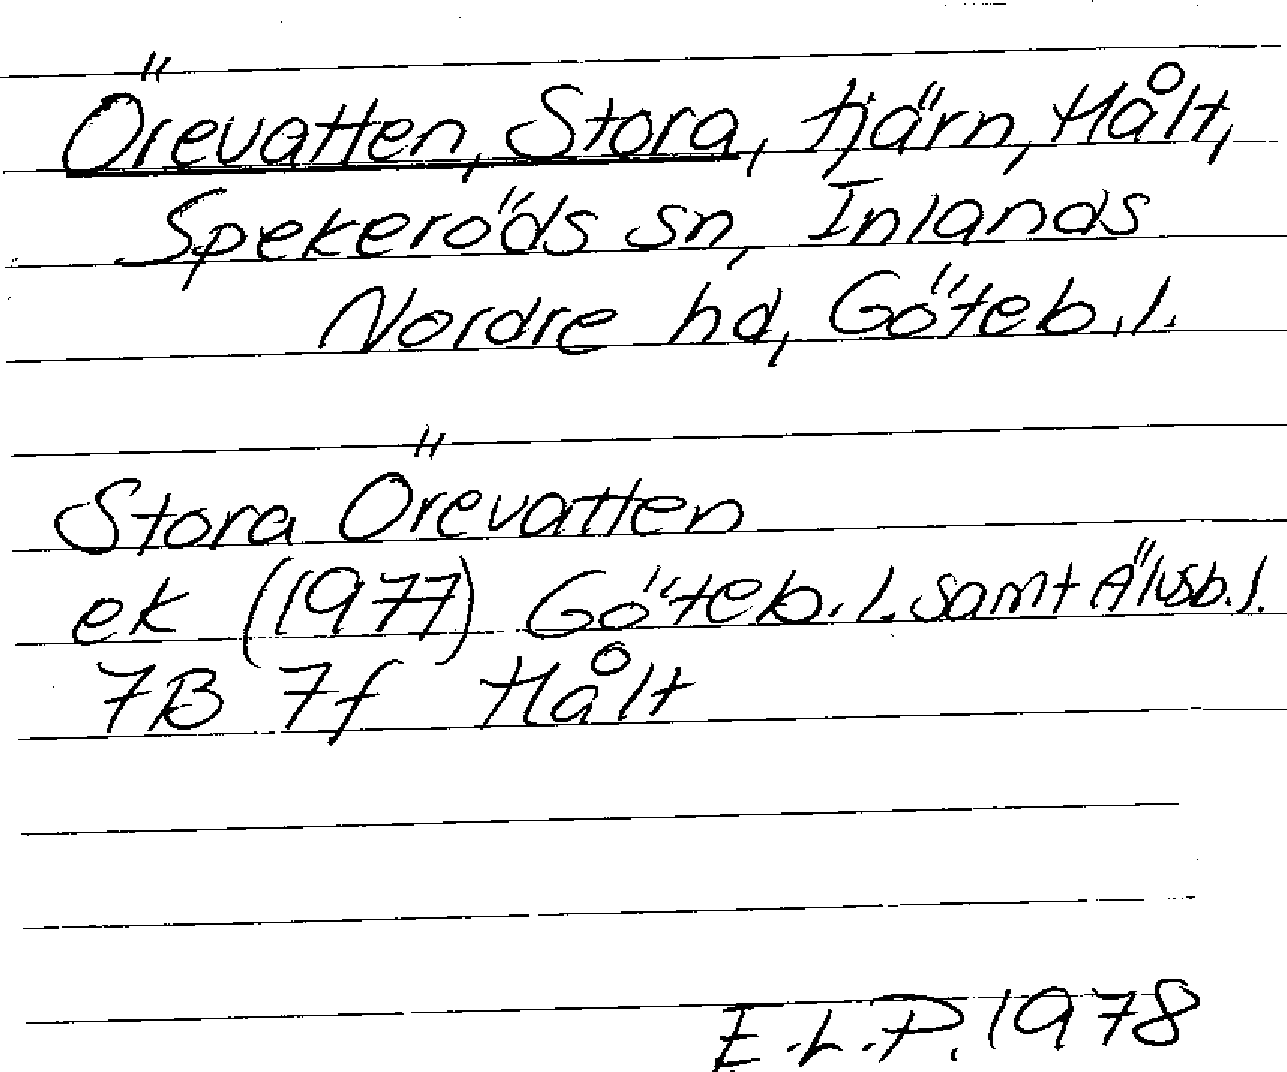 Örevatten, Stora, tjärn, Hålt,
Spekeröds sn, Inlands
Nordre hd, Göteb. l.
Stora Örevatten
ek (1977) Göteb. l. samt Älvsb. l.
7B 7f Hålt
E.L.P. 1978